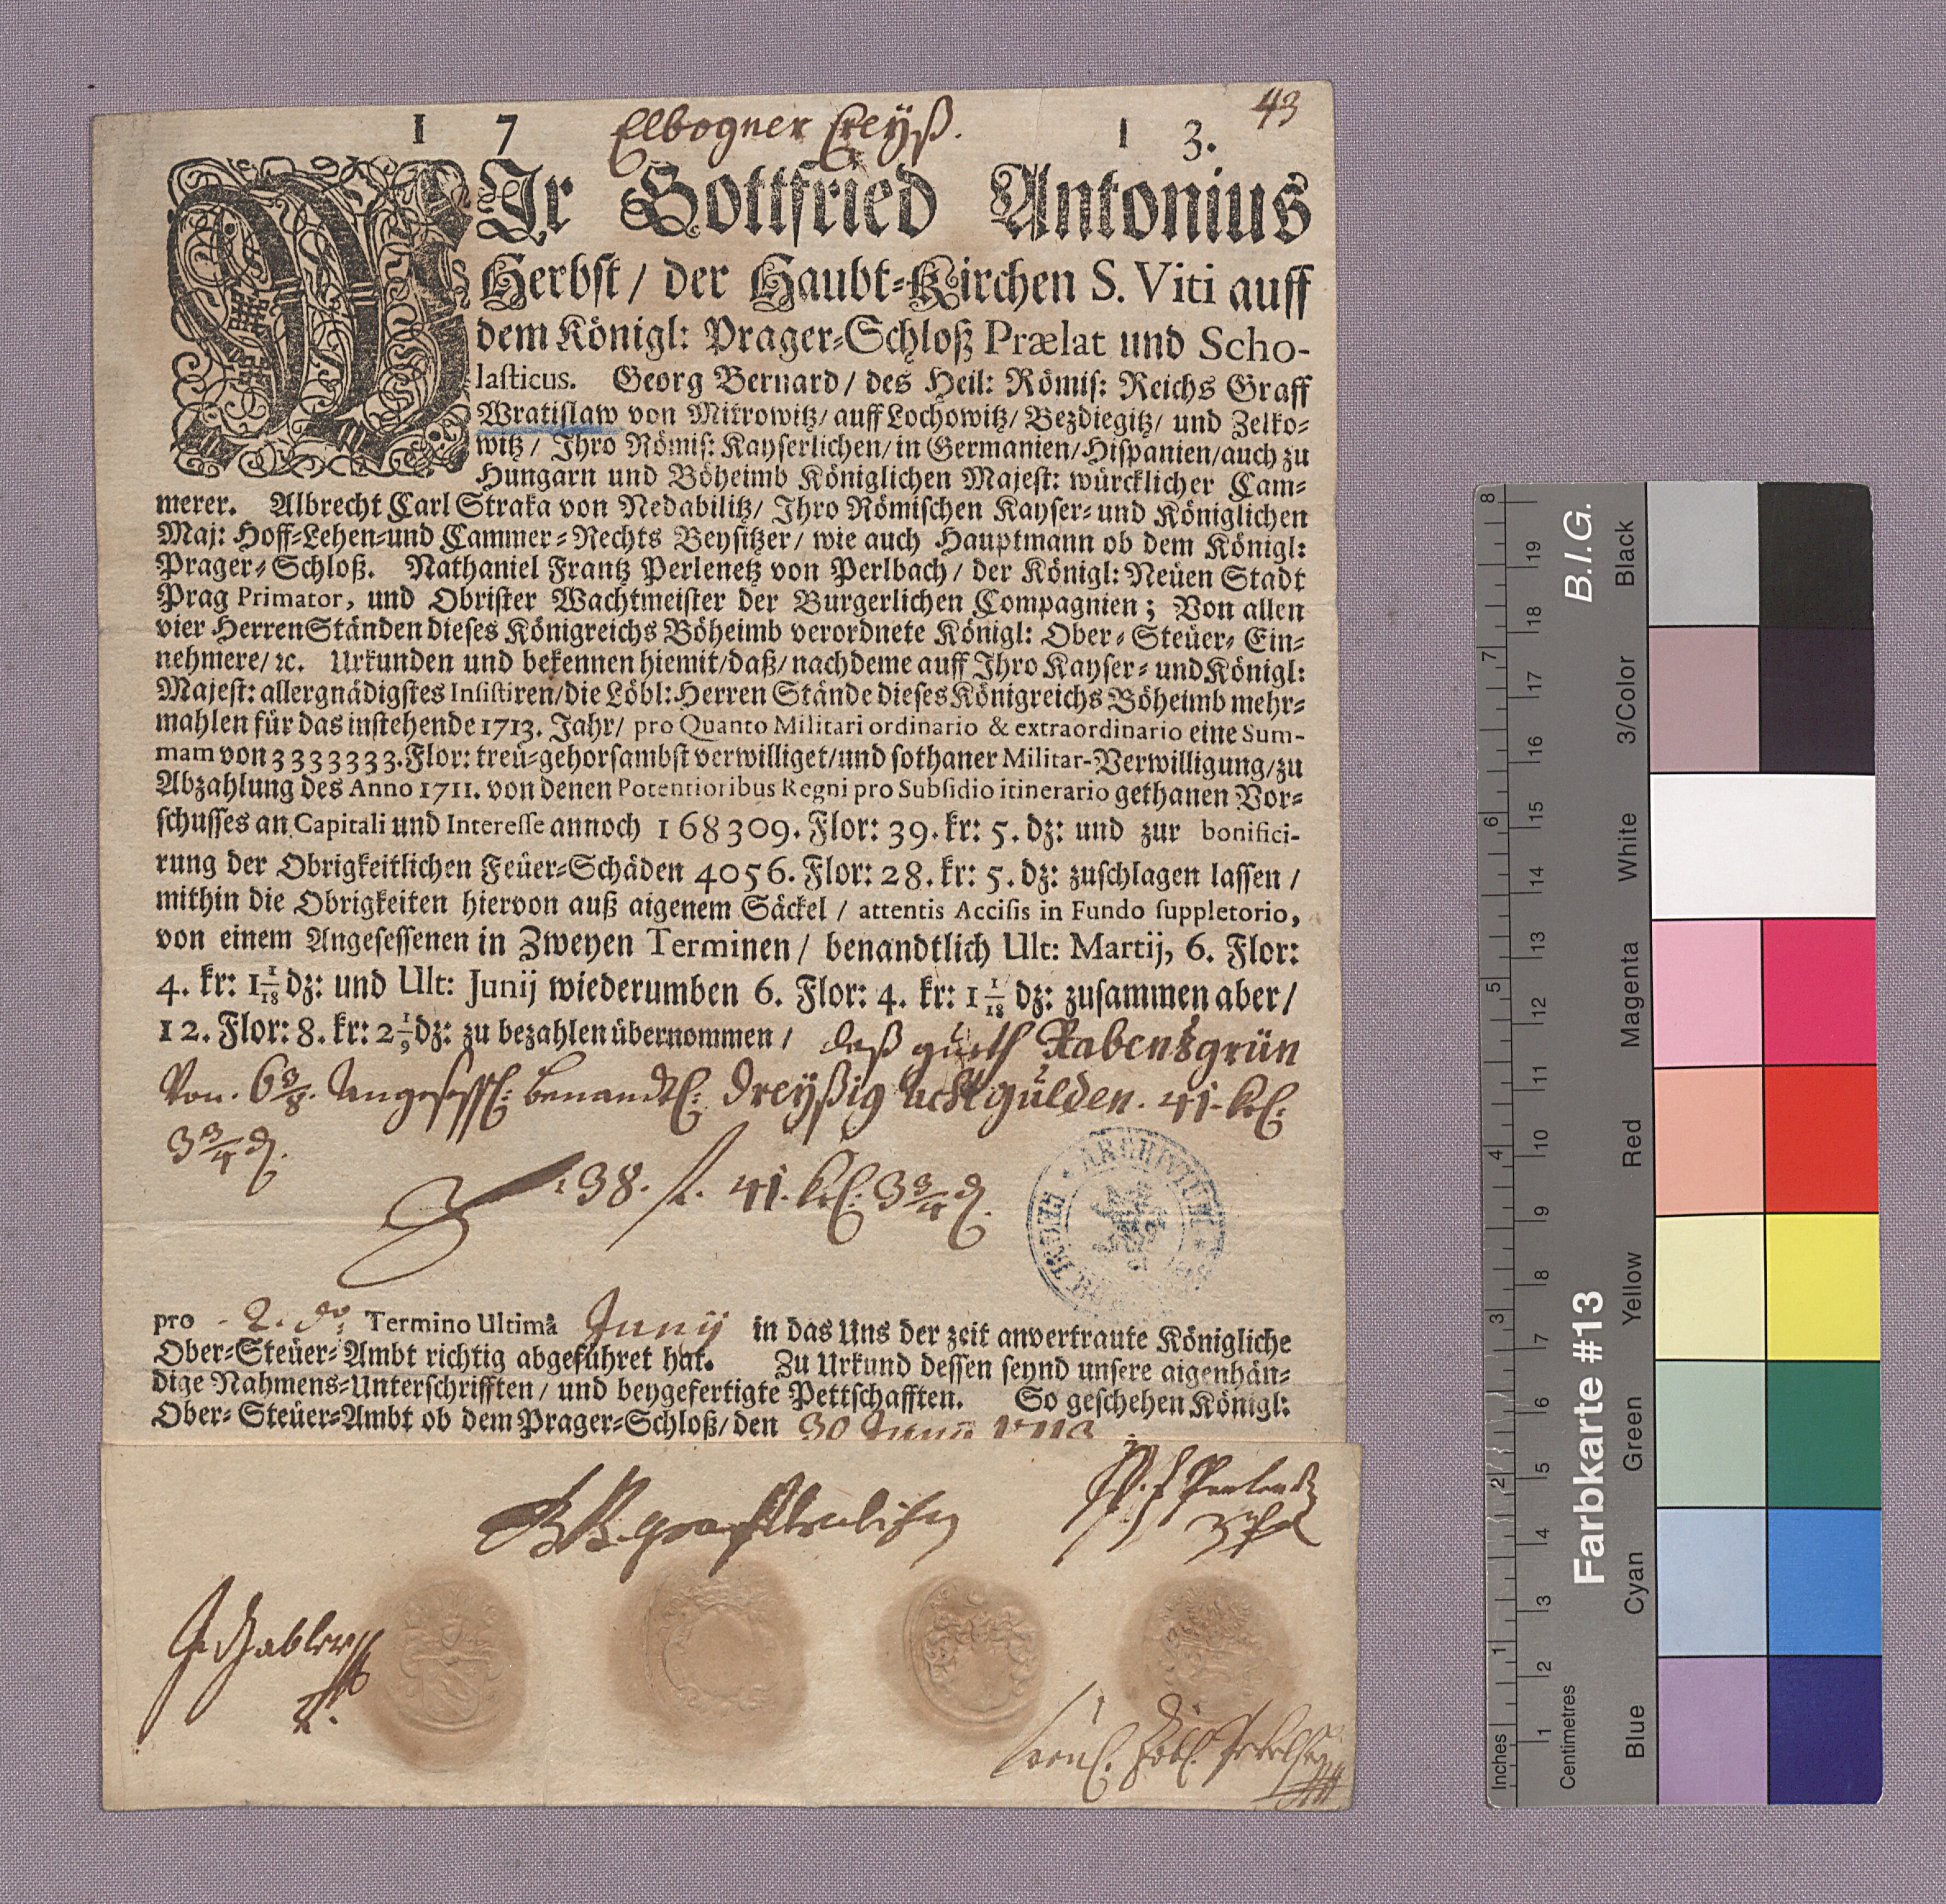 43
1 7 Elbogner Creÿß. 1 3.
WJr Gottfried Antonius
Herbst / der Haubt-Kirchen S. Viti auff
dem Königl: Prager-Schloß Prælat und Scho-
lasticus. Georg Bernard / des Heil: Römis: Reichs Graff
Wratislaw von Mitrowitz / auff Lochowitz / Bezdiegitz / und Zelko-
witz / Ihro Römis: Kayserlichen / in Germanien / Hispanien / auch zu
Hungarn und Böheimb Königlichen Majest: würcklicher Cam-
merer. Albrecht Carl Straka von Nedabilitz / Ihro Römischen Kayser- und Königlichen
Maj: Hoff-Lehen- und Cammer-Rechts Beysitzer / wie auch Hauptmann ob dem Königl:
Prager-Schloß. Nathaniel Frantz Perlenetz von Perlbach / der Königl: Neüen Stadt
Prag Primator, und Obrister Wachtmeister der Burgerlichen Compagnien; Von allen
vier Herren Ständen dieses Königreichs Böheimb verordnete Königl: Ober-Steüer-Ein-
nehmere / ꝛc. Urkunden und bekennen hiemit / daß / nachdeme auff Ihro Kayser- und Königl:
Majest: allergnädigstes Insistiren / die Löbl: Herren Stände dieses Königreichs Böheimb mehr-
mahlen für das instehende 1713. Jahr / pro Quanto Militari ordinario & extraordinario eine Sum-
mam von 3333333. Flor: treü-gehorsambst verwilliget / und sothaner Militar-Verwilligung / zu
Abzahlung des Anno 1711. von denen Potentioribus Regni pro Subsidio itinerario gethanen Vor-
schusses an Capitali und Interesse annoch 168309. Flor: 39. kr: 5. dz: und zur bonifici-
rung der Obrigkeitlichen Feüer-Schäden 4056. Flor: 28. kr: 5. dz: zuschlagen lassen /
mithin die Obrigkeiten hiervon auß aigenem Säckel / attentis Accisis in Fundo suppletorio,
von einem Angesessenen in Zweyen Terminen / benandtlich Ult: Martij, 6. Flor:
4. kr: 1 1/18 dz: und Ult: Junij wiederumben 6. Flor: 4. kr: 1 1/18 dz: zusammen aber /
12. Flor: 8. kr: 2 1/9 dz: zu bezahlen übernommen / daß gueth Rabensgrün
Von. 6 3/8. Angesessl: benandtl: dreÿßig acht gulden. 41. krl:
3 3/4 d.
38. fl. 41. krl: 3 3/4 d.
ARCHIVUM
pro 2.do Termino Ultimâ Junÿ in das Uns der zeit anvertraute Königliche
Ober-Steüer-Ambt richtig abgeführet hat. Zu Urkund dessen seynd unsere aigenhän-
dige Nahmens-Unterschrifften / und beygefertigte Pettschafften. So geschehen Königl:
Ober-Steüer-Ambt ob dem Prager-Schloß / den 30 Junÿ 1713
B.I.G.
Farbkarte #13
Inches 1 2 3 4 5 6 7 8
Centimetres 1 2 3 4 5 6 7 8 9 10 11 12 13 14 15 16 17 18 19
Blue Cyan Green Yellow Red Magenta White 3/Color Black